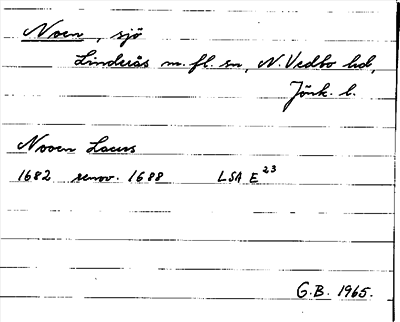 Noen, sjö
Linderås m. fl. sn, N. Vedbo hd,
Jönk. l.
Nooen Lacus
1682 renov. 1688 LSA E 23
G.B. 1965.